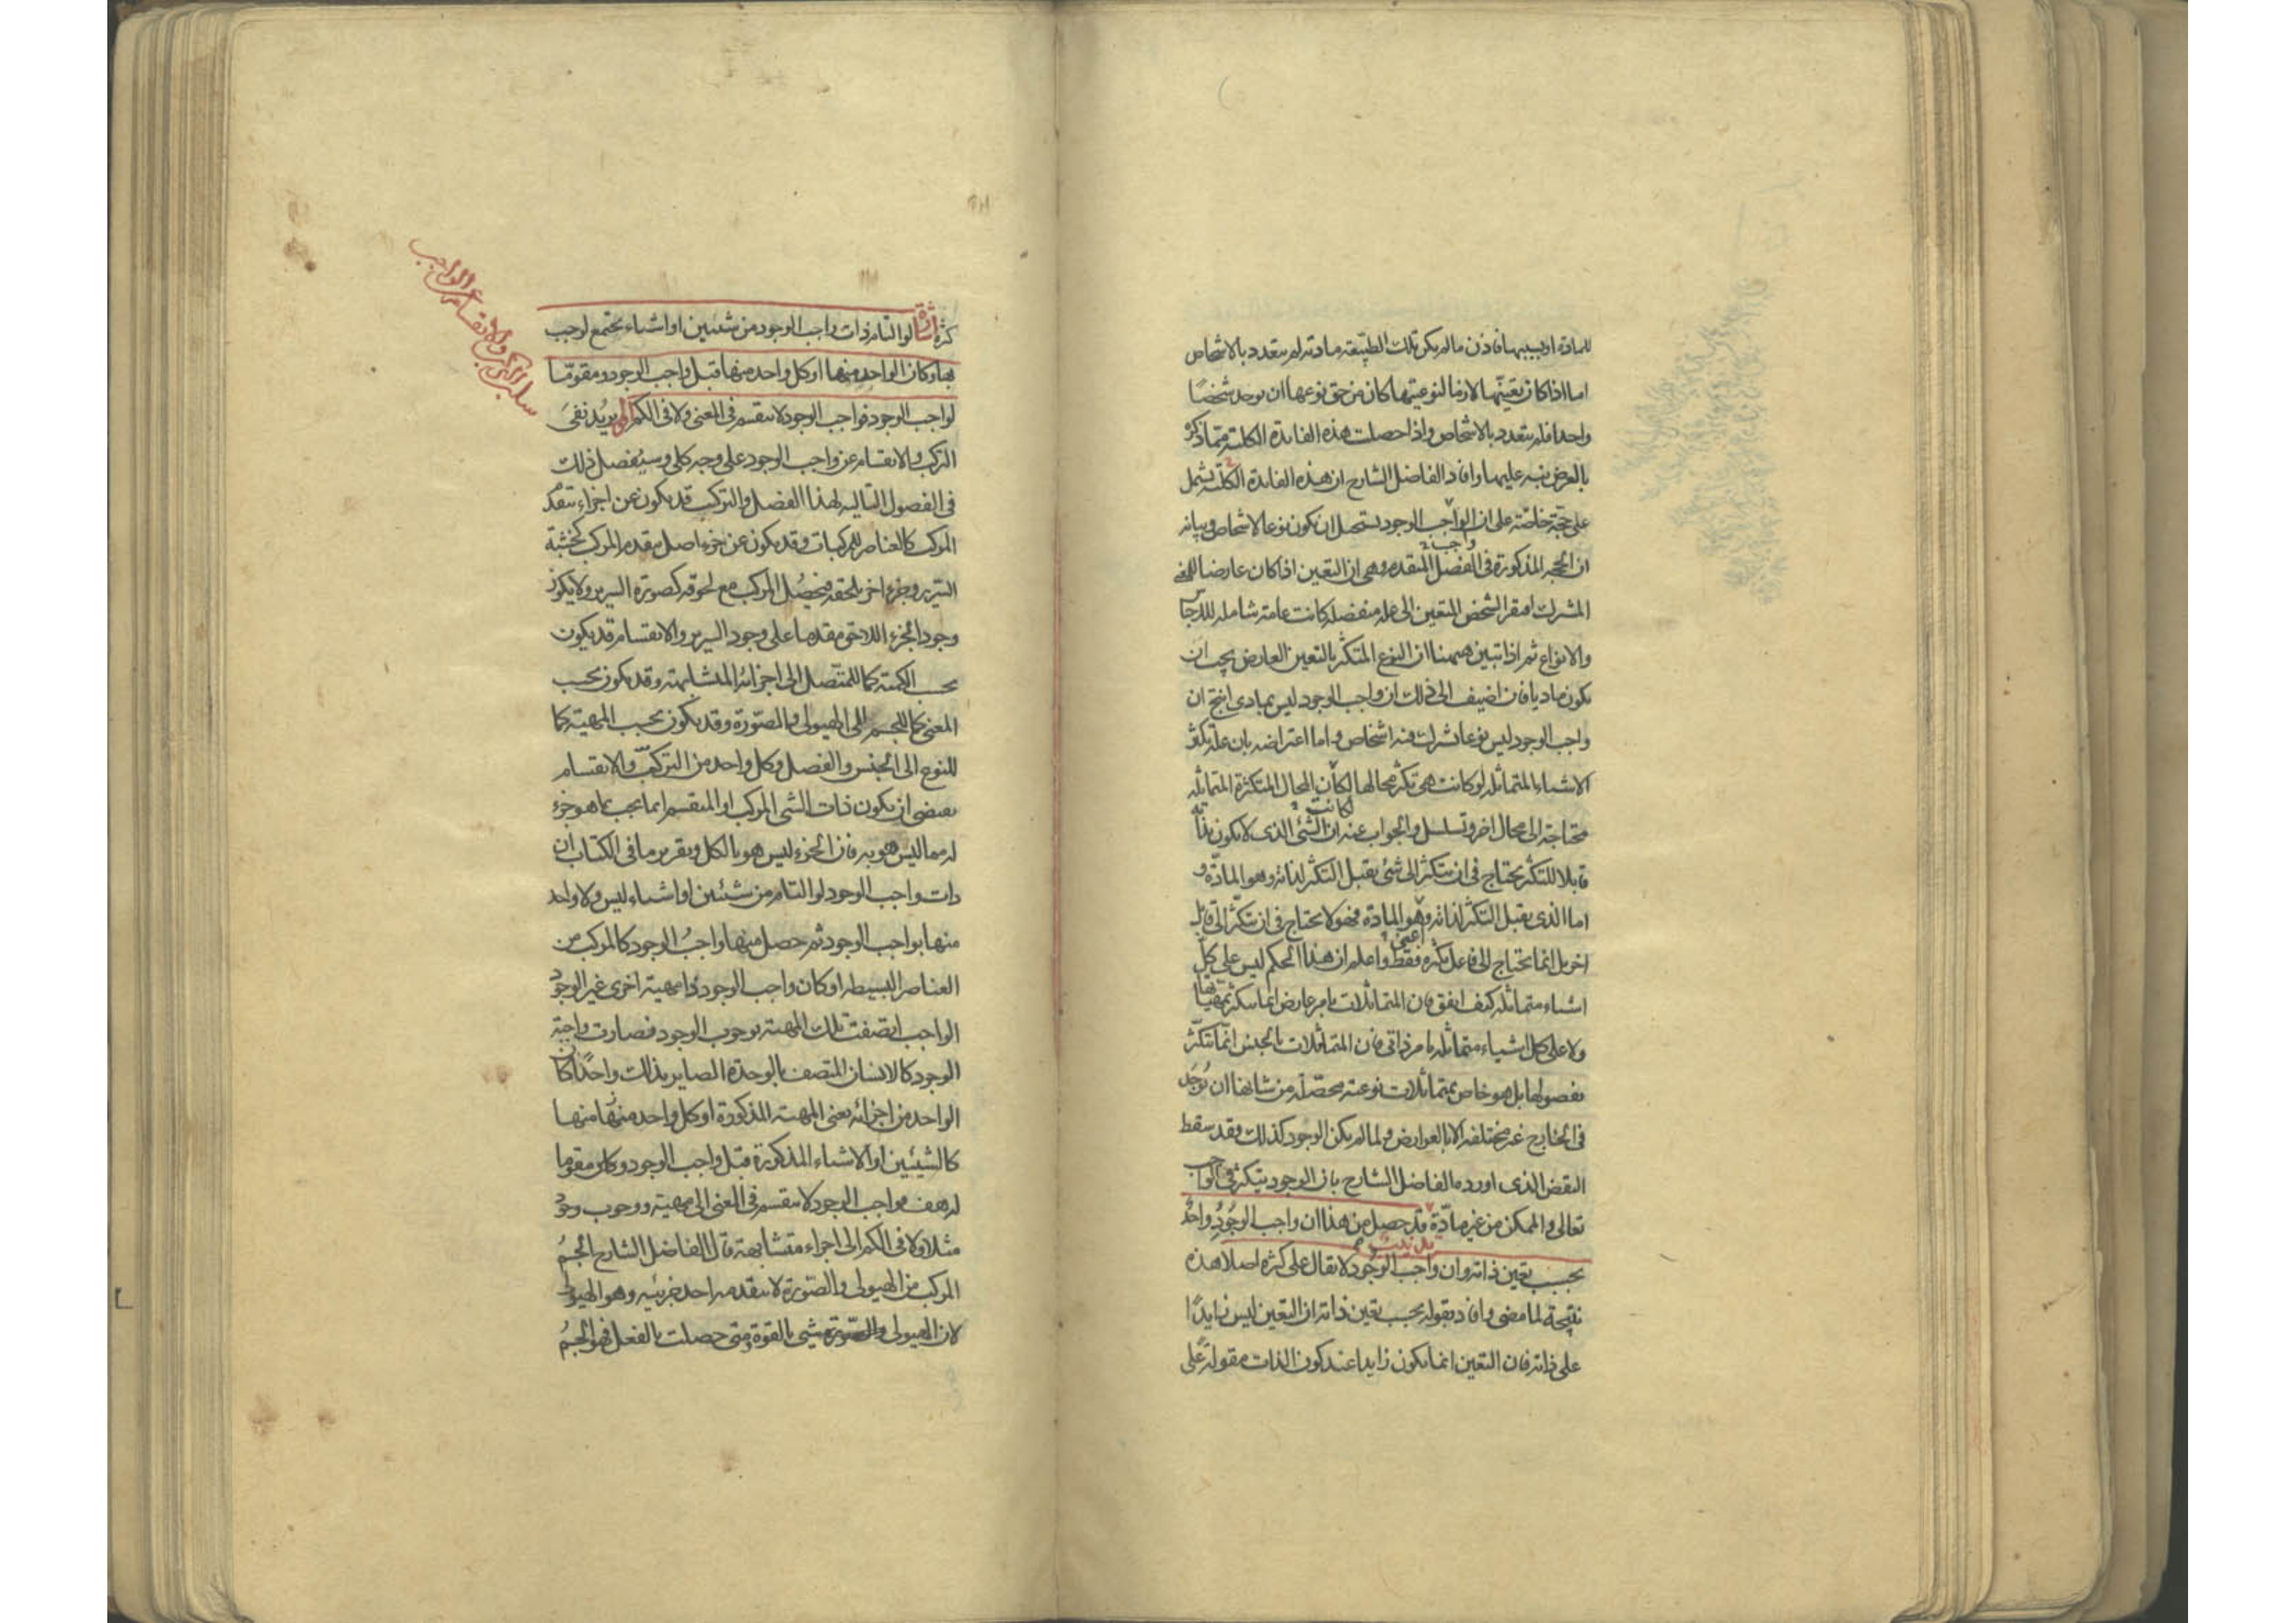 للمادة او بسببها فاذن ما لم يكن تلك الطبيعة مادته لم يتعدد بالاشخاص
اما اذا كان تعينها لازما لنوعيتها كان من حق نوعها ان يوجد شخصًا
واحدا فلم يتعدد بالاشخاص واذا حصلت هذه الفايدة الكلية مما ذكر
بالعرض نبه عليها وافاد الفاضل الشارح ان هذه الفايدة الكلية تشمل
على حجة خاصة على ان الواجب الوجود يستحيل ان يكون نوعا لاشخاص وبيانه
واجب
ان الحجة المذكورة فى الفصل المتقدم وهى ان التعين اذا كان عارضا للمعنى
المشترك افتقر الشخص المتعين الى علة منفصلة كانت عامة شاملة للاجناس
والانواع ثم اذا تبين ههنا ان النوع المتكثر بالتعين العارض يجب ان
يكون ماديا فان اضيف الى ذلك ان واجب الوجود ليس بمادى انتج ان
واجب الوجود ليس نوعا تشترك فيه اشخاص واما اعتراضه بان علة تكثر
الاشياء المتماثلة لو كانت هى تكثر محالها لكان المحال المتكثرة المتماثلة
لكانت
محتاجة الى محال اخر وتسلسل والجواب عنه ان الشئ الذى لا يكون بذاته
قابلا للتكثر يحتاج فى ان يتكثر الى شئ يقبل التكثر لذاته وهو المادة و
اما الذى يقبل التكثر لذاته وهو المادة فهو لا يحتاج فى ان يتكثر الى قابل
اعنى
اخر بل انما يحتاج الى فاعل يكثره فقط واعلم ان هذا الحكم ليس على كل
اشياء متماثلة كيف اتفق فان المتماثلات بامر عارض انما يتكثر بمهياتها
ولا على كل اشياء متماثلة بامر ذاتى فان المتماثلات بالجنس انما تتكثر
بفصولها بل هو خاص بمتماثلات نوعية محصلة من شانها ان توجد
فى الخارج غير مختلفة الا بالعوارض ولما لم يكن الوجود كذلك فقد سقط
النقض الذى اورده الفاضل الشارح بان الوجود يتكثر فى الواجب
تعالى والممكن من غير مادة قد حصل من هذا ان واجب الوجود واحد
تذنيب
بحسب تعين ذاته وان واجب الوجود لا يقال على كثرة اصلا هذه
نتيجة لما مضى وافاد بقوله بحسب تعين ذاته ان التعين ليس زايدًا
على ذاته فان التعين انما يكون زايدا عند كون الذات مقولة على
سلب التركيب والانقسام عن الواجب
كثرة اشارة لو التام ذات واجب الوجود من شيئين او اشياء تجتمع لوجب
بها وكان الواحد منها او كل واحد منها قبل واجب الوجود ومقوما
لواجب الوجود فواجب الوجود لا ينقسم فى المعنى ولا فى الكم يريد نفى
التركيب والانقسام عن واجب الوجود على وجه كلى وسيفصل ذلك
فى الفصول التالية لهذا الفصل والتركيب قد يكون عن اجزاء تتقدم
المركب كالعناصر للمركبات وقد يكون عن جزء اصل يتقدم المركب كخشبة
السرير وجزء اخر يلحقه فيحصل المركب مع لحوقه كصورة السرير ولا يكون
وجود الجزء اللاحق مقدما على وجود السرير والانقسام قد يكون
بحسب الكمية كما للمتصل الى اجزائه المتشابهة وقد يكون بحسب
المعنى كما للجسم الى الهيولى والصورة وقد يكون بحسب المهية كما
للنوع الى الجنس والفصل وكل واحد من التركيب والانقسام
يقتضى ان يكون ذات الشئ المركب او المنقسم انما يجب بما هو جزء
له مما ليس هو به فان الجزء ليس هو بالكل وتقرير ما فى الكتاب ان
ذات واجب الوجود لو التام من شيئين او اشياء ليس ولا واحد
منها بواجب الوجود ثم حصل منها واجب الوجود كالمركب من
العناصر البسيطة او كان واجب الوجود ذا مهية اخرى غير الوجود
الواجب اتصفت تلك المهية بوجوب الوجود فصارت واجبة
الوجود كالانسان المتصف بالوحدة الصاير بذلك واحدًا كان
الواحد من اجزائه يعنى المهية المذكورة او كل واحد منها منها
كالشيئين او الاشياء المذكورة قبل واجب الوجود وكان مقوما
له هف فواجب الوجود لا ينقسم فى المعنى الى مهية ووجوب وجود
مثلا ولا فى الكم الى اجزاء متشابهة قال الفاضل الشارح الجسم
المركب من الهيولى والصورة لا يتقدمه احد جزئيه وهو الهيولى
لان الهيولى شئ بالقوة ومتى حصلت بالفعل فهو الجسم